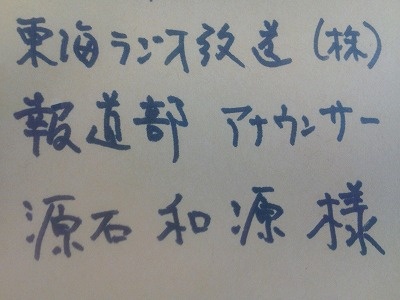 東海ラジオ放送(株)
報道部 アナウンサー
源石和源様